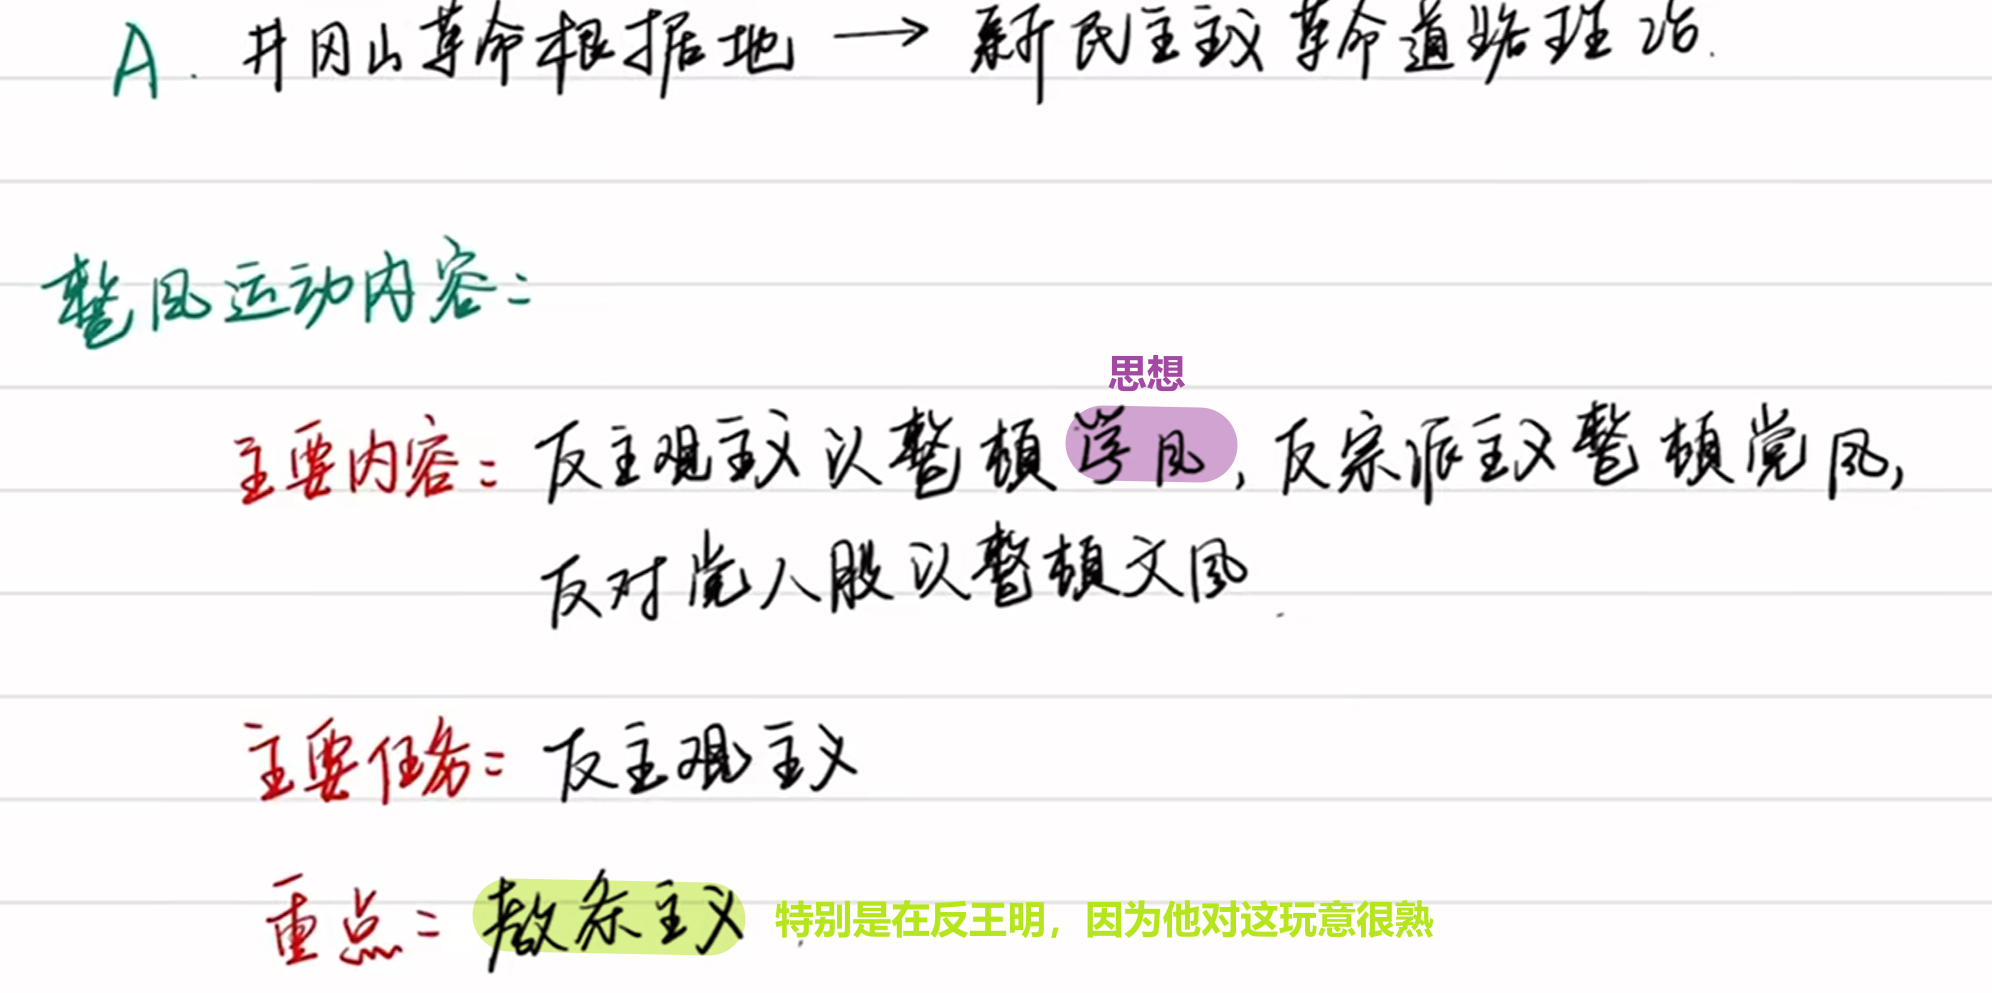 A. 井冈山革命根据地 → 新民主主义革命道路理论.
整风运动内容:
思想
主要内容: 反主观主义以整顿学风, 反宗派主义整顿党风,
反对党八股以整顿文风.
主要任务: 反主观主义
重点: 教条主义. 特别是在反王明，因为他对这玩意很熟